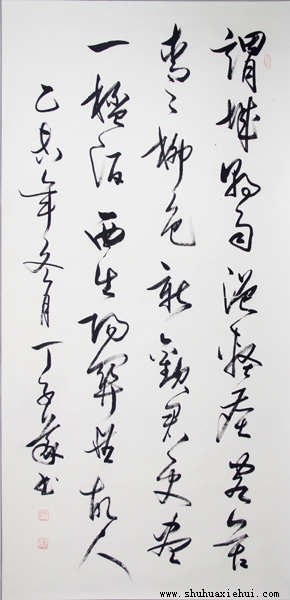 渭城朝雨浥輕塵客舍
青々柳色新勸君更盡
一杯酒西出陽關無故人
乙亥年冬月丁子書
www.shuhuaxiehui.com